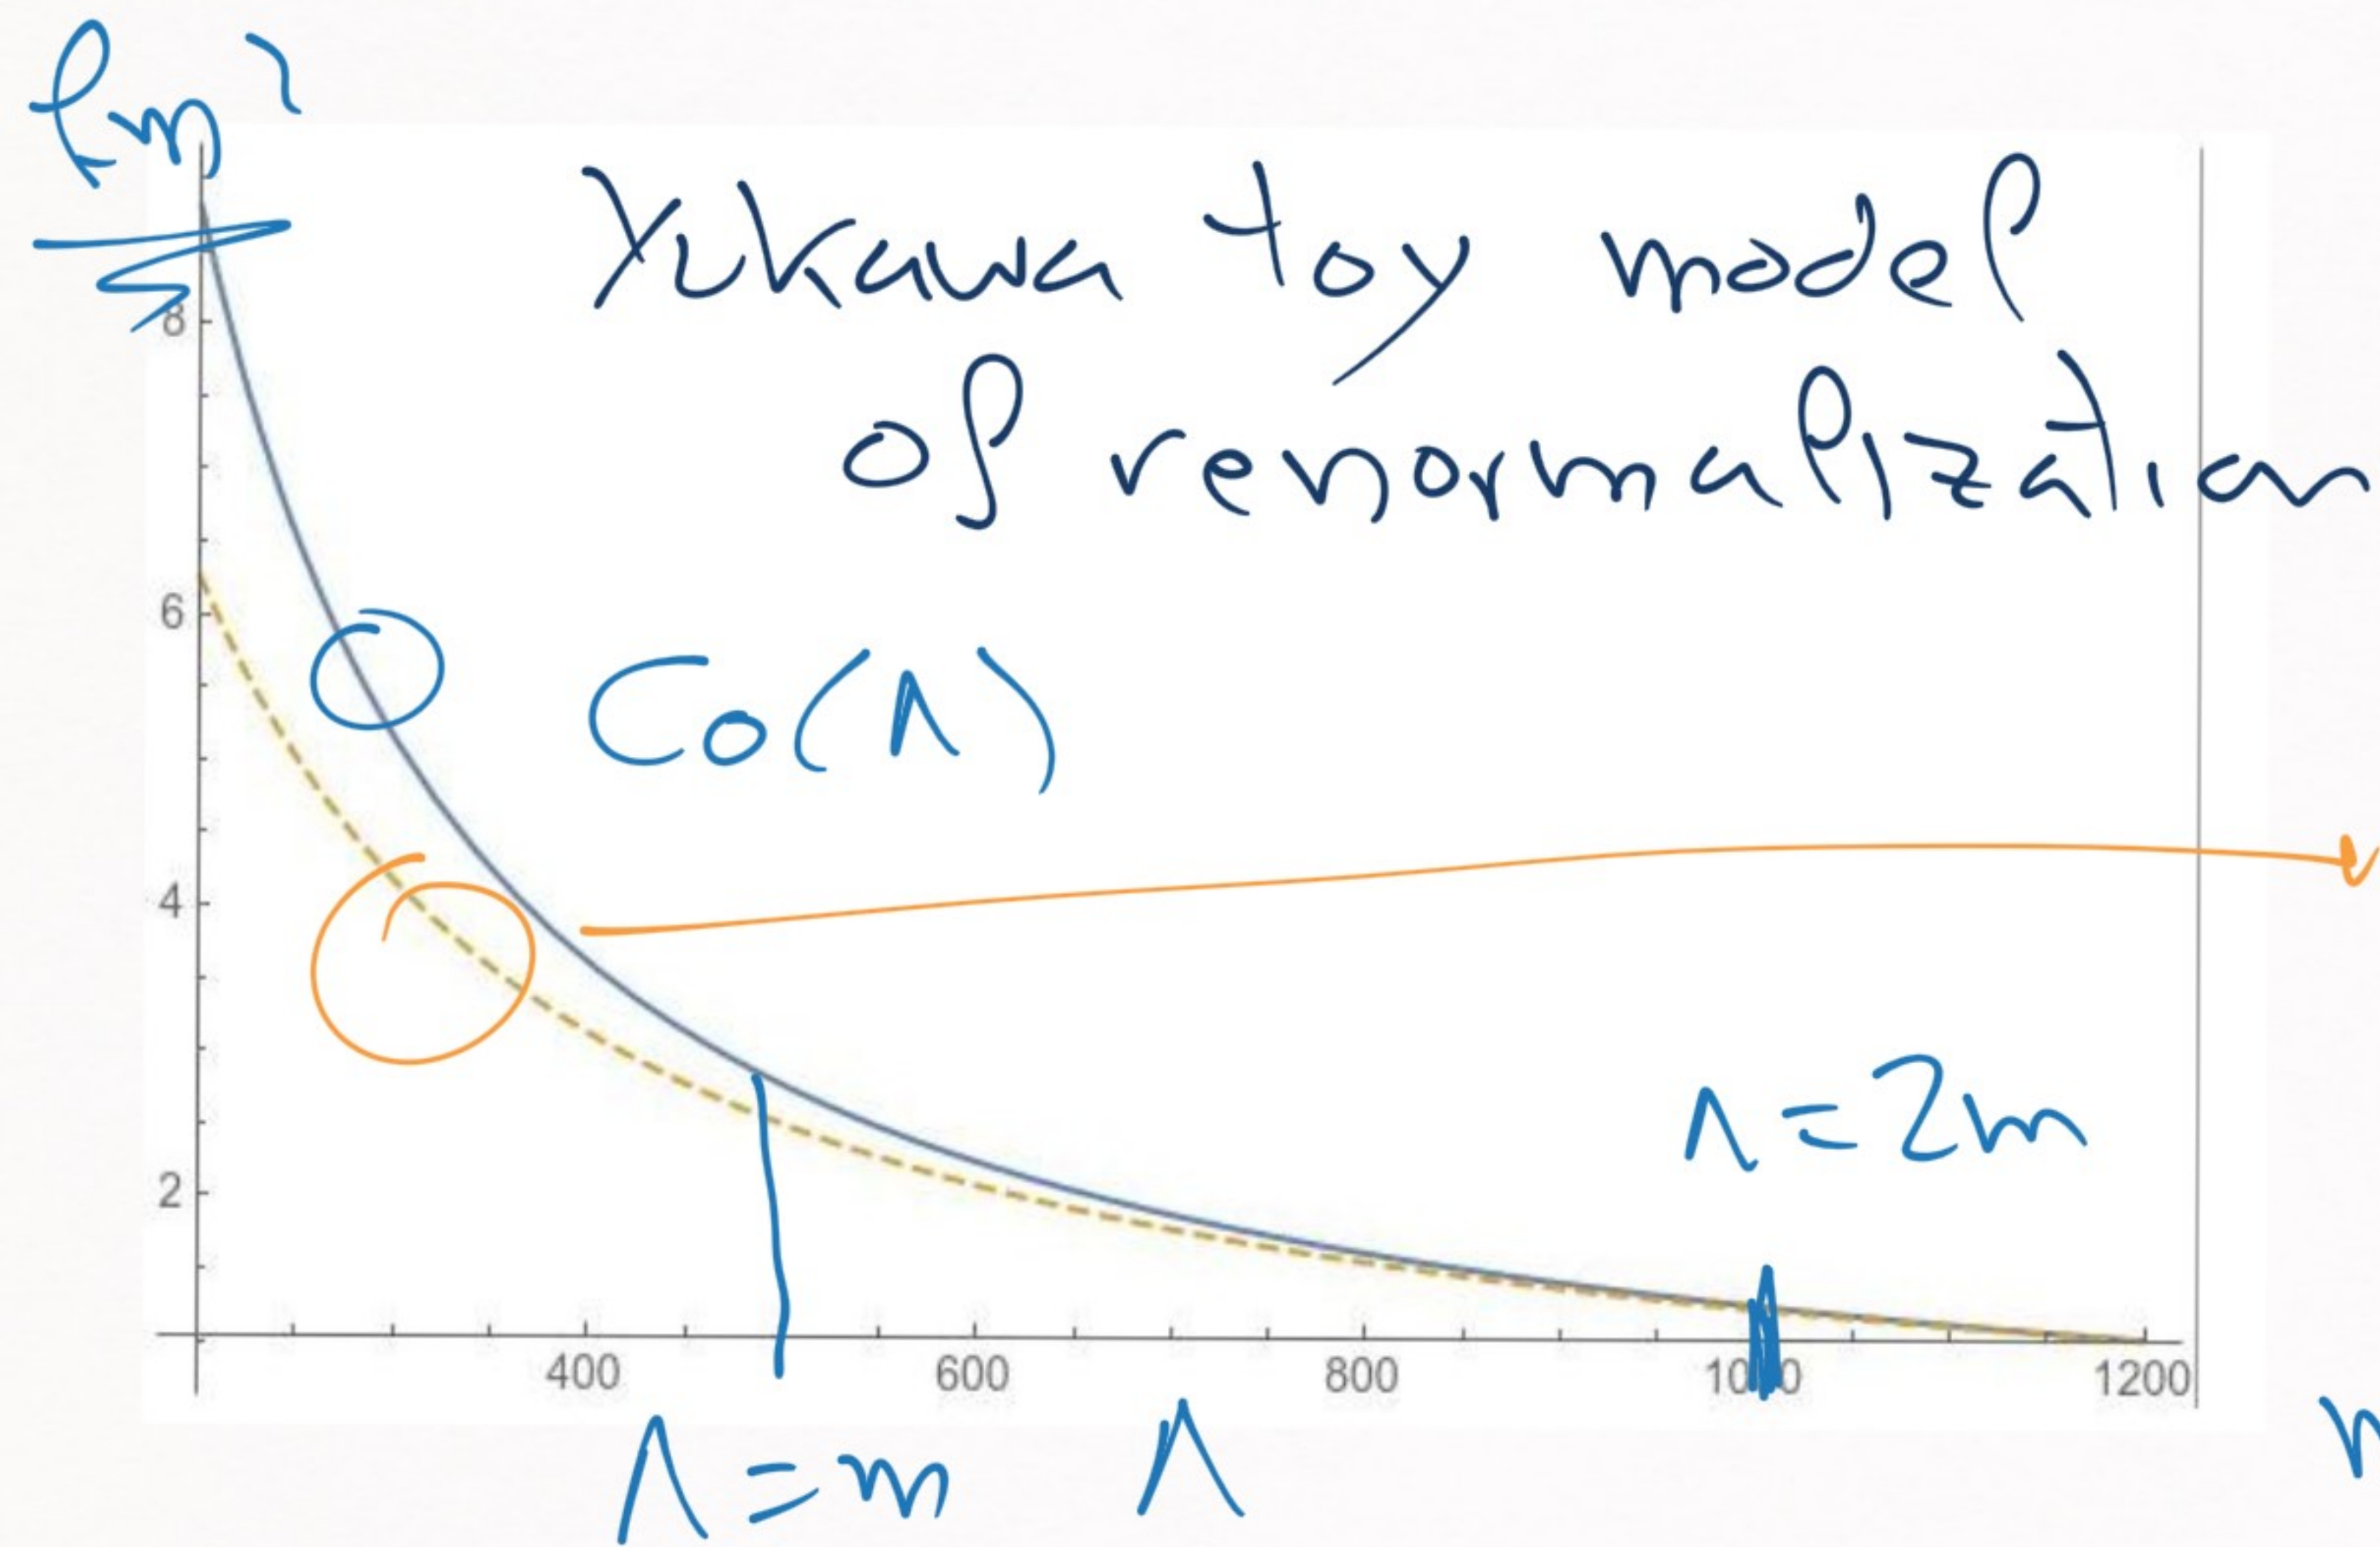 fm²
Yukawa toy model
of renormalization
8
6
C0(Λ)
4
Λ=2m
2
400 600 800 1000 1200
Λ=m Λ